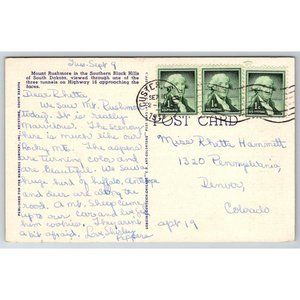 Tues. Sept 9
Mount Rushmore in the Southern Black Hills
of South Dakota, viewed through one of the
three tunnels on Highway 16 approaching the
faces.
POST CARD
Dear Rhetta
We saw Mt. Rushmore
today. It is really
marvelous. The scenery
here is much like our
Rocky Mts. The aspens
are turning color and
are beautiful. We saw a
huge herd of buffalo, antelope
and deer are along the
road. A mt. Sheep came
up to our car and we fed
him cookies. They aren't
a bit afraid. Love, Shirley
Miss Rhetta Hammett
1320 Pennsylvania,
Denver,
Colorado.
apt 19